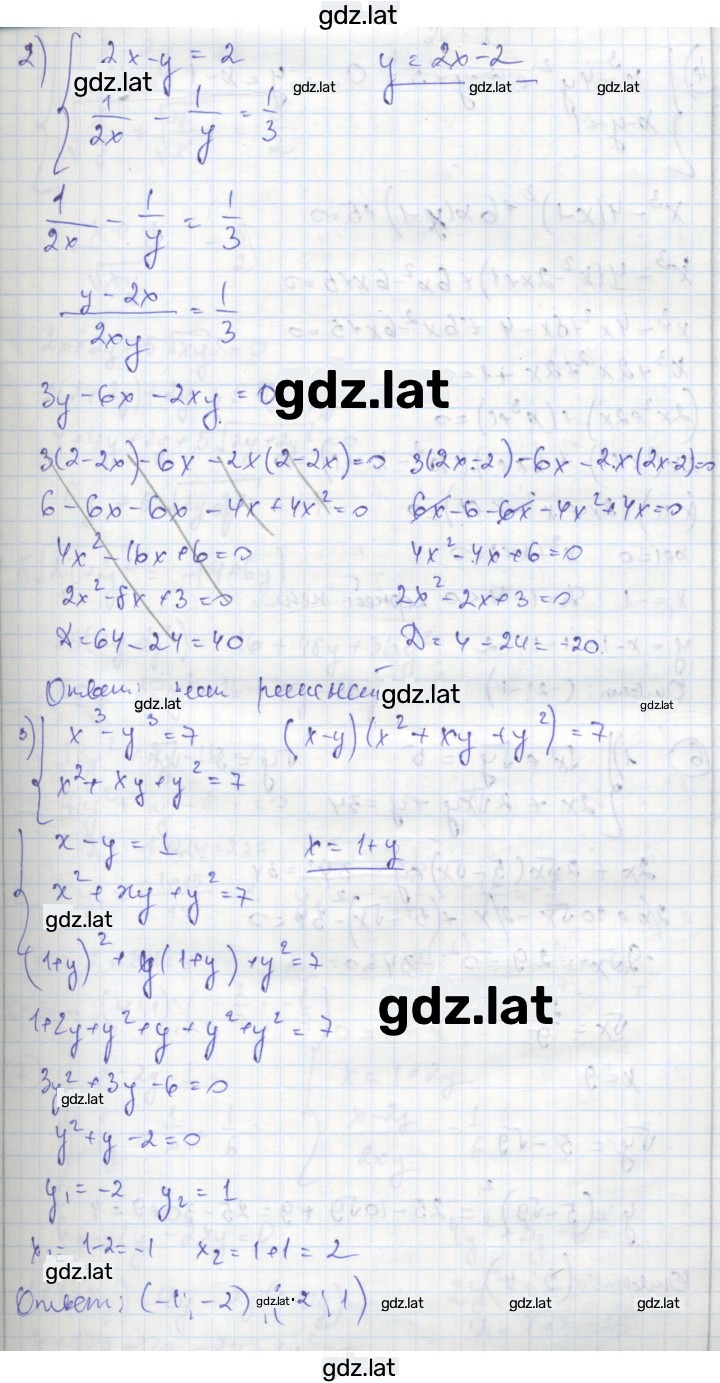 gdz.lat
2) { 2x-y = 2    y = 2x-2
gdz.lat gdz.lat gdz.lat gdz.lat
1/2x - 1/y = 1/3
1/2x - 1/y = 1/3
(y-2x)/2xy = 1/3
3y-6x-2xy = 0
gdz.lat
3(2-2x)-6x-2x(2-2x)=0    3(2x-2)-6x-2x(2x-2)=0
6-6x-6x-4x+4x²=0    6x-6-6x-4x²+4x=0
4x²-16x+6=0    4x²-4x+6=0
2x²-8x+3=0    2x²-2x+3=0
D=64-24=40    D=4-24=-20.
Ответ: нет решений
gdz.lat gdz.lat gdz.lat
3) { x³-y³=7    (x-y)(x²+xy+y²)=7
x²+xy+y²=7
{ x-y=1    x=1+y
x²+xy+y²=7
gdz.lat
(1+y)²+y(1+y)+y²=7
gdz.lat
1+2y+y²+y+y²+y²=7
3y²+3y-6=0
gdz.lat
y²+y-2=0
y₁=-2    y₂=1
x₁=1-2=-1    x₂=1+1=2
gdz.lat
Ответ: (-1;-2), (2;1)
gdz.lat gdz.lat gdz.lat gdz.lat
gdz.lat